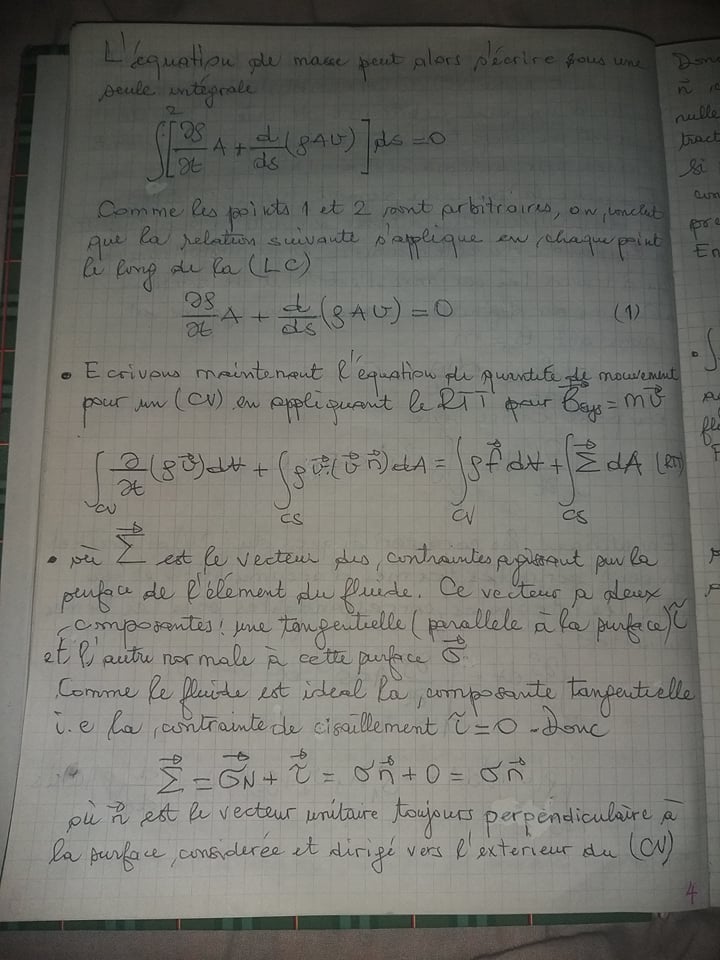 L'équation de masse peut alors s'écrire sous une
seule intégrale
∫² [∂ρ/∂t A + d/ds (ρAv)] ds = 0
Comme les points 1 et 2 sont arbitraires, on conclut
que la relation suivante s'applique en chaque point
le long de la (LC)
∂ρ/∂t A + d/ds (ρAv) = 0 (1)
• Ecrivons maintenant l'équation de quantité de mouvement
pour un (CV) en appliquant le RTT pour B⃗sys = mv⃗
∫cv ∂/∂t (ρv⃗) dV + ∫cs ρv⃗·(v⃗ n⃗) dA = ∫cv ρf⃗ dV + ∫cs Σ⃗ dA (RTT)
• où Σ⃗ est le vecteur des contraintes agissant sur la
surface de l'élément du fluide. Ce vecteur a deux
composantes: une tangentielle (parallèle à la surface) τ⃗
et l'autre normale à cette surface σ⃗.
Comme le fluide est idéal la composante tangentielle
i.e la contrainte de cisaillement τ = 0 - Donc
Σ⃗ = σ⃗N + τ⃗ = σn⃗ + 0 = σn⃗
où n⃗ est le vecteur unitaire toujours perpendiculaire à
la surface considerée et dirigé vers l'extérieur du (CV)
4
Donc
n⃗
nulle
tract
Si
con
pre
En